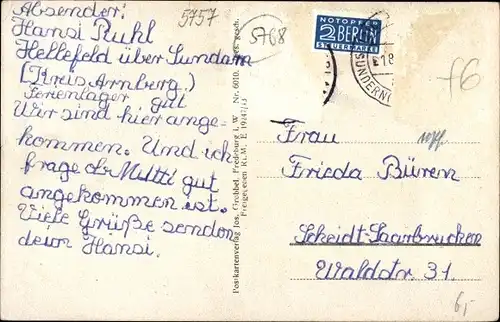 Absender:
Hansi Ruhl
Hellefeld über Sundern
(Kreis Arnberg.)
Ferienlager gut
Wir sind hier ange-
kommen. Und ich
frage ob Mutti gut
angekommen ist.
Viele Grüße senden
dein Hansi.
5757
5768
NOTOPFER
2 BERLIN
STEUERMARKE
f6
Postkartenverlag Jos. Grobbel, Fredeburg i. W. Nr. 6010. gesch.
Freigegeben
Frau
Frieda Büren
Scheidt-Saarbrücken
Waldstr. 31.
6,-